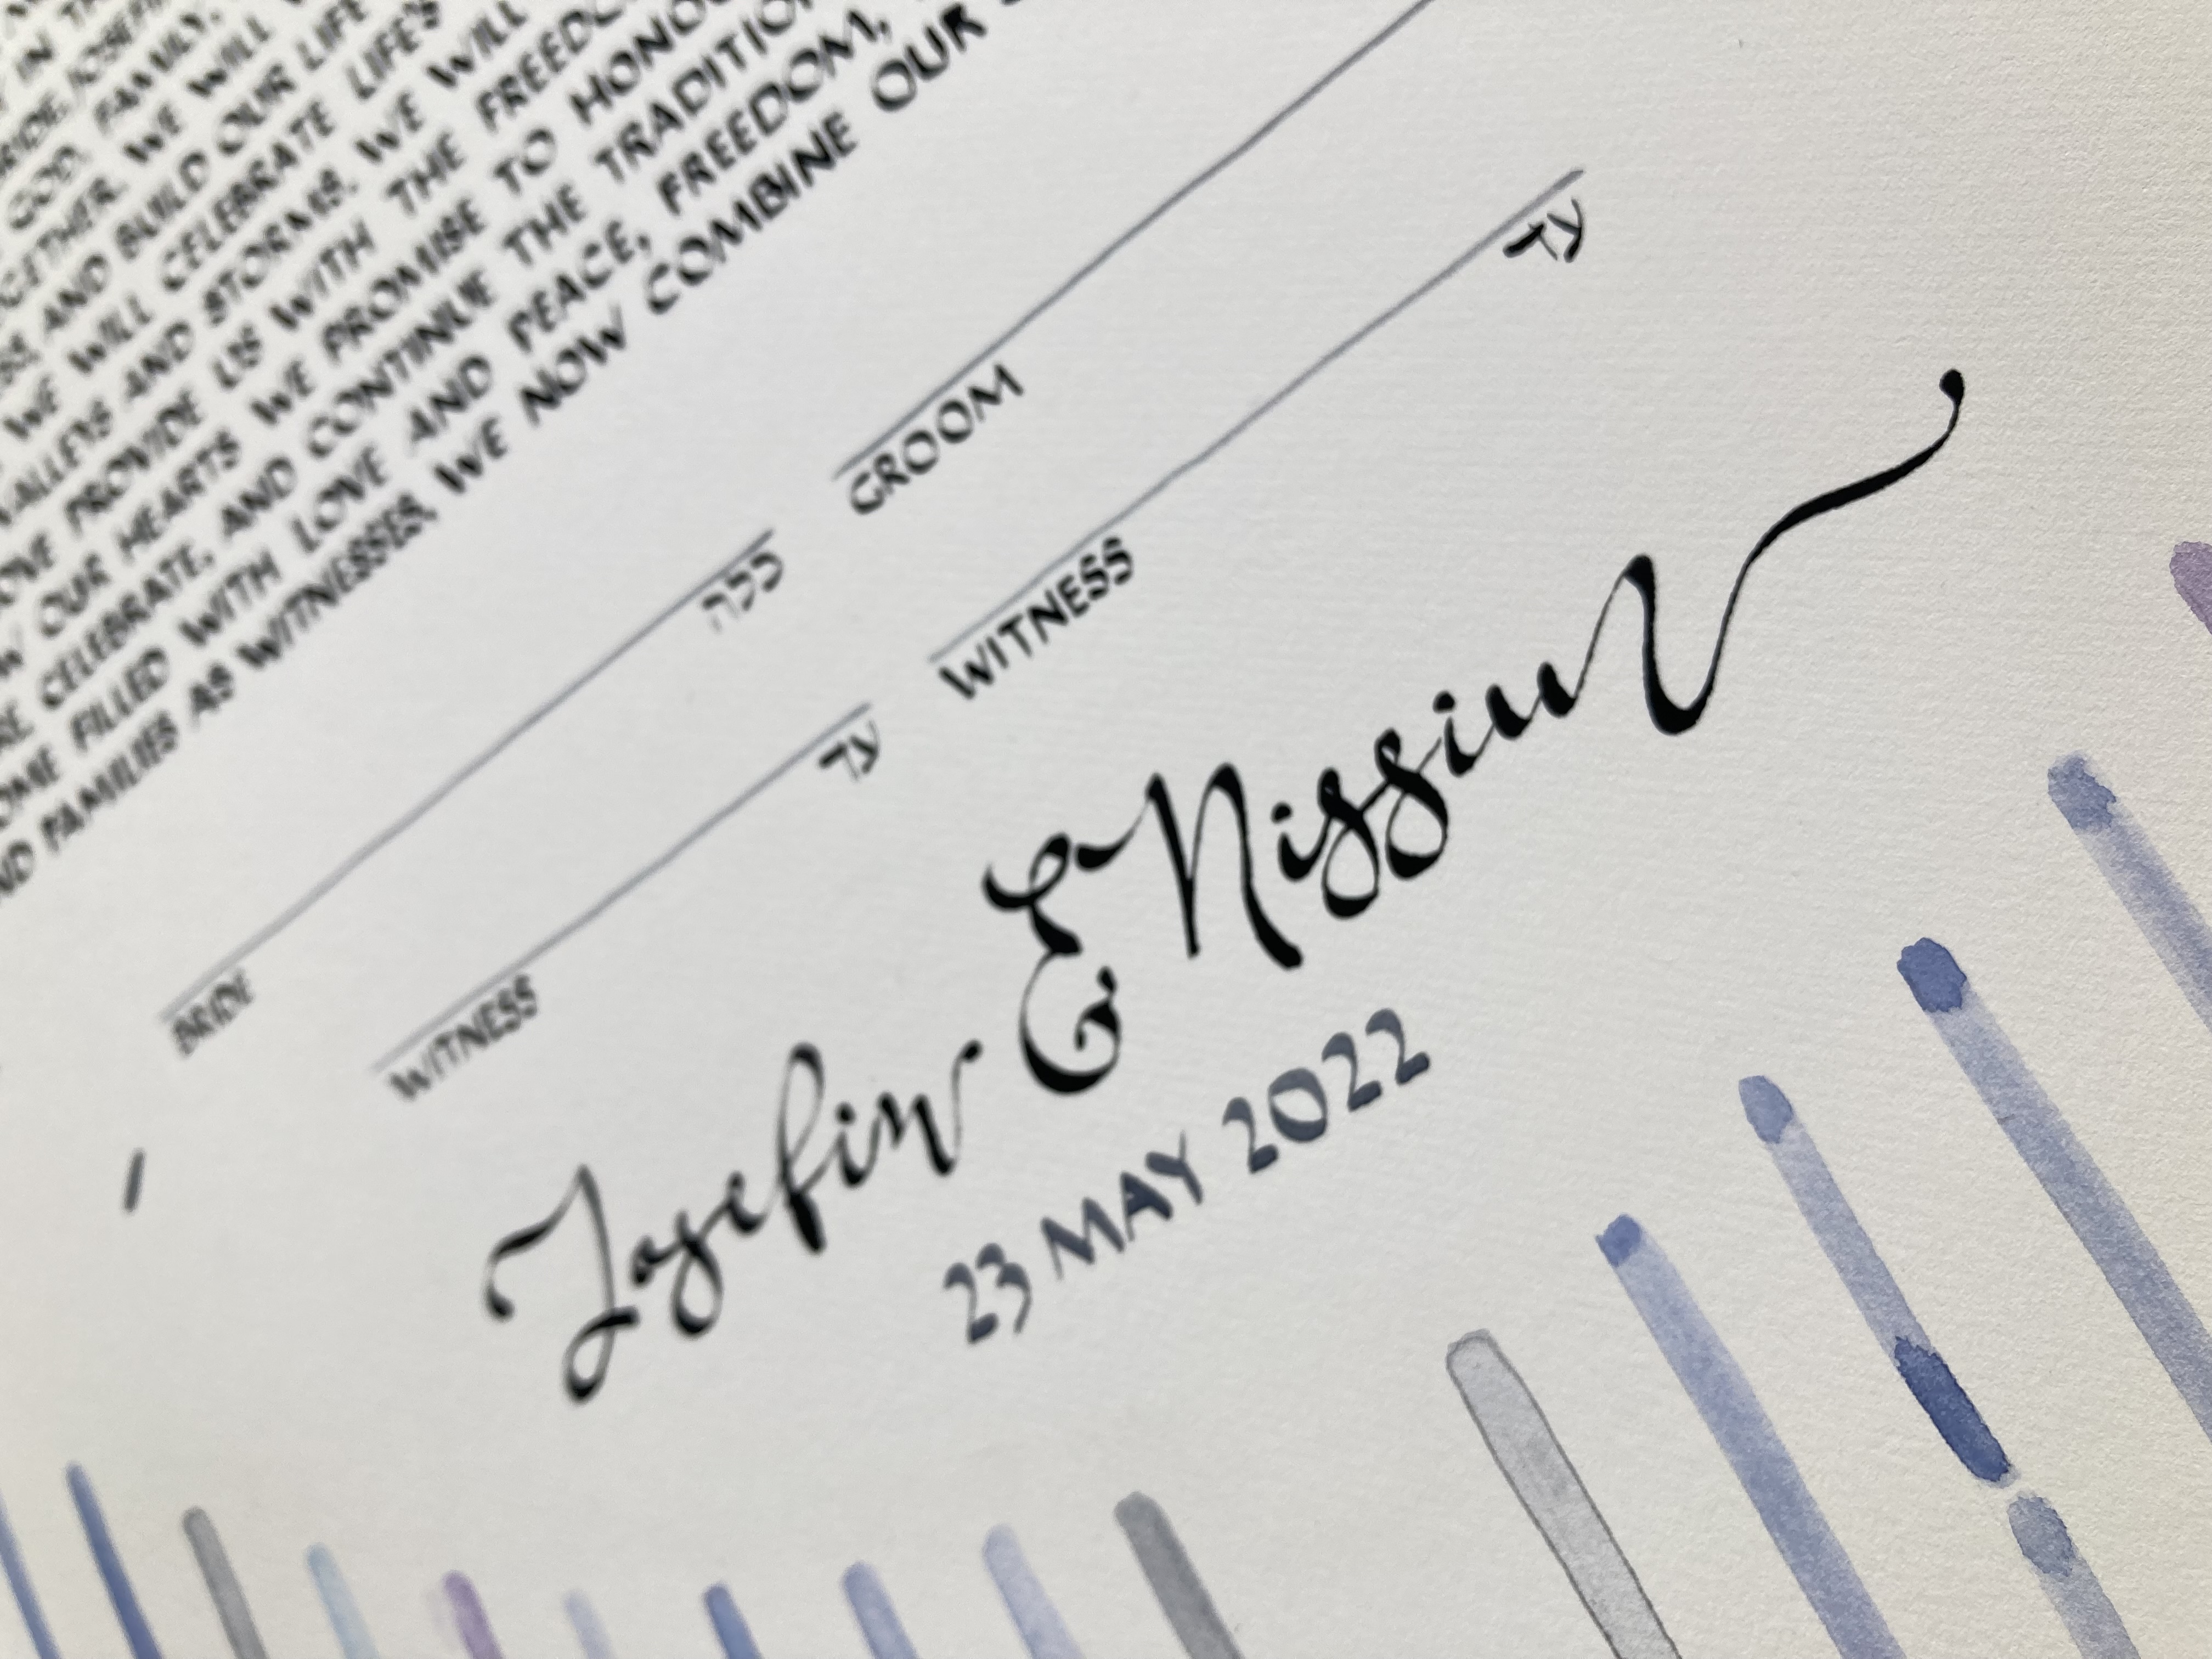 IN TH
GOD, FAMILY,
GETHER, WE WILL
AND BUILD OUR LIFE
WE WILL CELEBRATE LIFE'S
VALLEYS AND STORMS. WE WILL
PROVIDE US WITH THE FREEDO
OUR HEARTS WE PROMISE TO HONO
RE CELEBRATE, AND CONTINUE THE TRADITIO
OME FILLED WITH LOVE AND PEACE, FREEDOM,
ND FAMILIES AS WITNESSES, WE NOW COMBINE OUR
BRIDE כלה GROOM
WITNESS עד WITNESS עד
Josefin & Nissim
23 MAY 2022